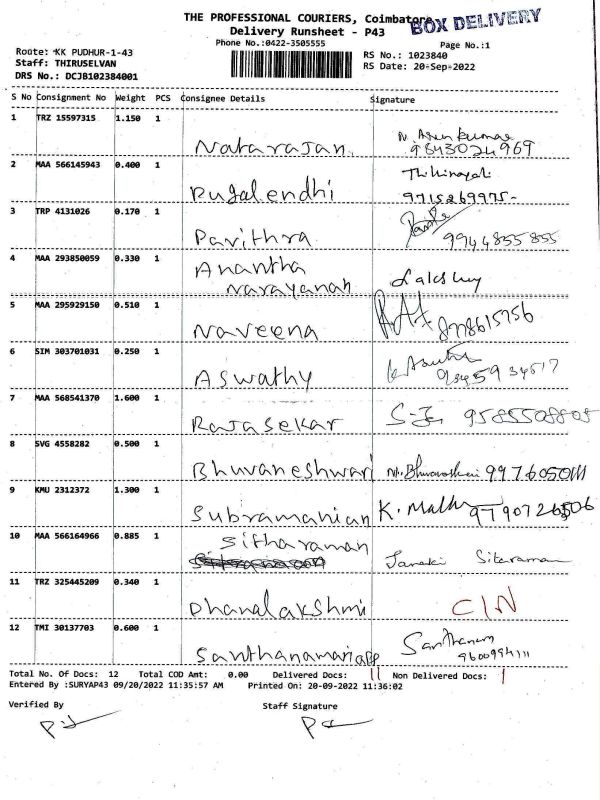 THE PROFESSIONAL COURIERS, Coimbatore
BOX DELIVERY
Delivery Runsheet - P43
Phone No.:0422-3505555
Page No.:1
Route: KK PUDHUR-1-43
RS No.: 1023840
Staff: THIRUSELVAN
RS Date: 20-Sep-2022
DRS No.: DCJB102384001
S No Consignment No Weight PCS Consignee Details Signature
1 TRZ 15597315 1.150 1 Natarajan N. Arun kumar
9843024969
2 MAA 566145943 0.400 1 Pugalendhi
9715269975-
3 TRP 4131026 0.170 1 Pavithra 9944855855
4 MAA 293850059 0.330 1 Anantha
Narayanan
5 MAA 295929150 0.510 1 Naveena 8778615756
6 SIM 303701031 0.250 1 Aswathy
7 MAA 568541370 1.600 1 Rajasekar
8 SVG 4558282 0.500 1 Bhuvaneshwari
9 KMU 2312372 1.300 1 Subramanian K.
10 MAA 566164966 0.885 1 Sitharaman
Janaki Sitaraman
11 TRZ 325445209 0.340 1 Dhanalakshmi CIN
12 TMI 30137703 0.600 1 Santhanam
Total No. Of Docs: 12 Total COD Amt: 0.00 Delivered Docs: 11 Non Delivered Docs: 1
Entered By :SURYAP43 09/20/2022 11:35:57 AM Printed On: 20-09-2022 11:36:02
Verified By Staff Signature